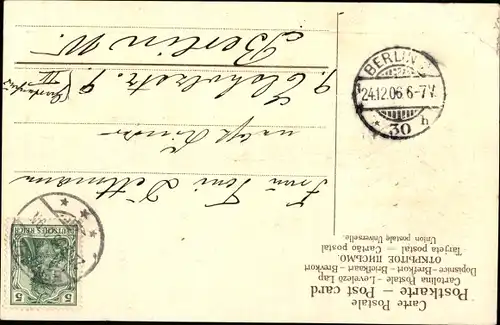 Carte Postale
Postkarte – Post card
Cartolina Postale - Levelező Lap
Dopisnice - Brefkort - Briefkaart - Brevkort
ОТКРЫТОЕ ПИСЬМО.
Tarjeta postal – Cartão postal
Union postale Universelle.
Frau Toni Dettmann
nebst Kinder
9. Elsholzstr. 9
Berlin W.
BERLIN
24.12.06.6-7V.
30 h
DEUTSCHES REICH
5 5